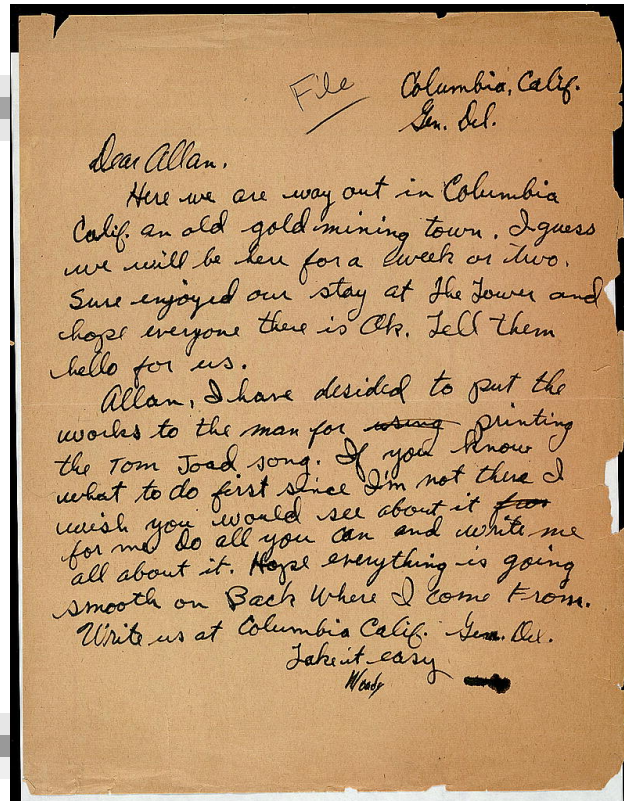 File
Columbia, Calif.
Gen. Del.
Dear Allan.
Here we are way out in Columbia
Calif. an old gold mining town. I guess
we will be here for a week or two.
Sure enjoyed our stay at the Tower and
hope everyone there is Ok. Tell them
hello for us.
Allan, I have desided to put the
works to the man for using printing
the Tom Joad song. If you know
what to do first since I'm not there I
wish you would see about it for
for me. Do all you can and write me
all about it. Hope everything is going
smooth on Back Where I Come From.
Write us at Columbia Calif. Gen. Del.
Take it easy
Woody